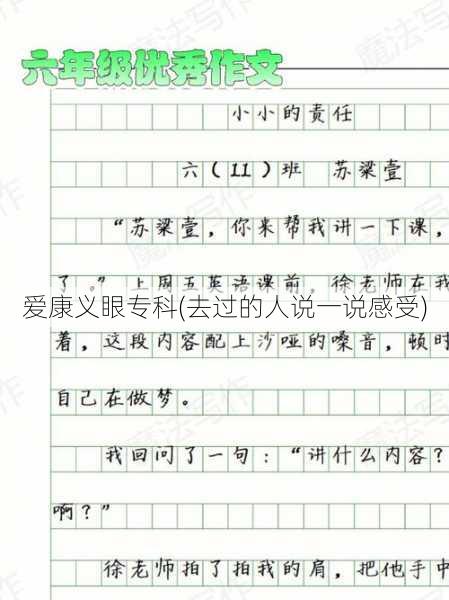 六年级优秀作文
小小的责任
六(11)班 苏梁壹
“苏梁壹,你来帮我讲一下课,
了。”上周五英语课前,徐老师在我
爱康义眼专科(去过的人说一说感受)
着,这段内容配上沙哑的嗓音,顿时
自己在做梦。
我回问了一句:“讲什么内容?
啊?”
徐老师拍了拍我的肩,把他手中
魔法写作